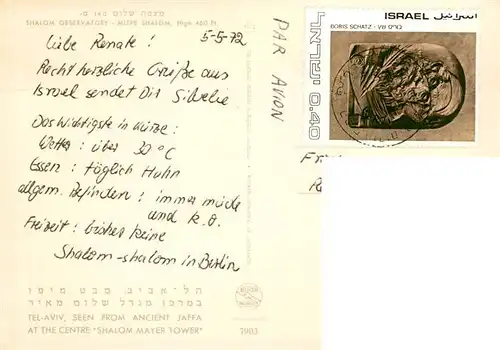 מצפה שלום 140 מ-
SHALOM OBSERVATORY - MIZPE SHALOM, High 460 Ft.
5-5-72
Liebe Renate!
Recht herzliche Grüße aus
Israel sendet Dir
Das Wichtigste in Kürze:
Wetter: über 30°C
Essen: täglich Huhn
allgem. Befinden: immer müde
und k.o.
Freizeit: bisher keine
Shalom-shalom in Berlin
תל-אביב, מבט מיפו
במרכז מגדל שלום מאיר
TEL-AVIV, SEEN FROM ANCIENT JAFFA
AT THE CENTRE "SHALOM MAYER TOWER"
7903
PAR AVION
ISRAEL اسرائيل
BORIS SCHATZ
ישראל 0.40